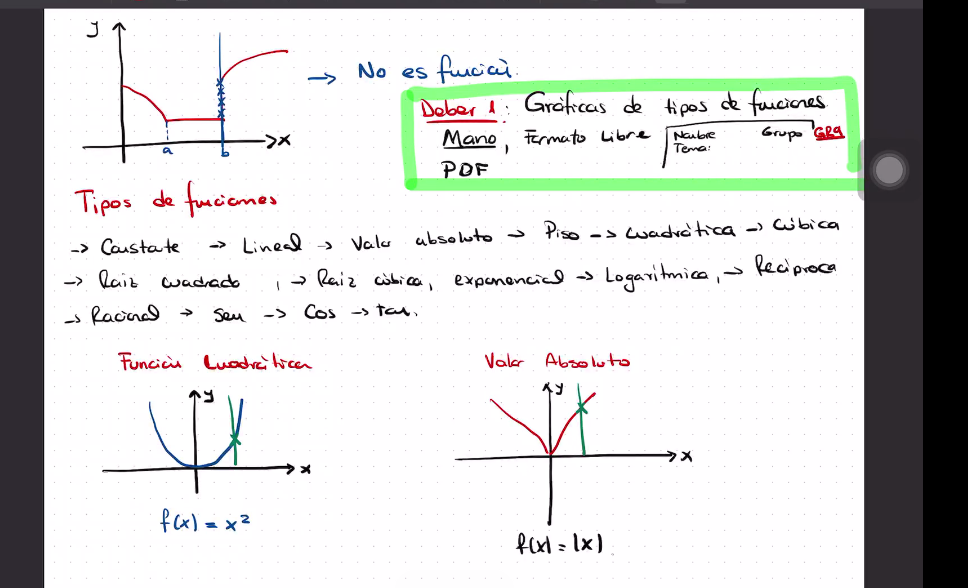 y
→ No es función.
a b x
Deber 1: Gráficas de tipos de funciones
Mano, Formato Libre Nombre Grupo GR9
Tema:
PDF
Tipos de funciones
→ Constante → Lineal → Valor absoluto → Piso → cuadrática → Cúbica
→ Raíz cuadrado , → Raíz cúbica, exponencial → Logarítmica, → Recíproca
→ Racional → Sen → Cos → tan.
Función Cuadrática Valor Absoluto
y y
x x
f(x) = x²
f(x) = |x|